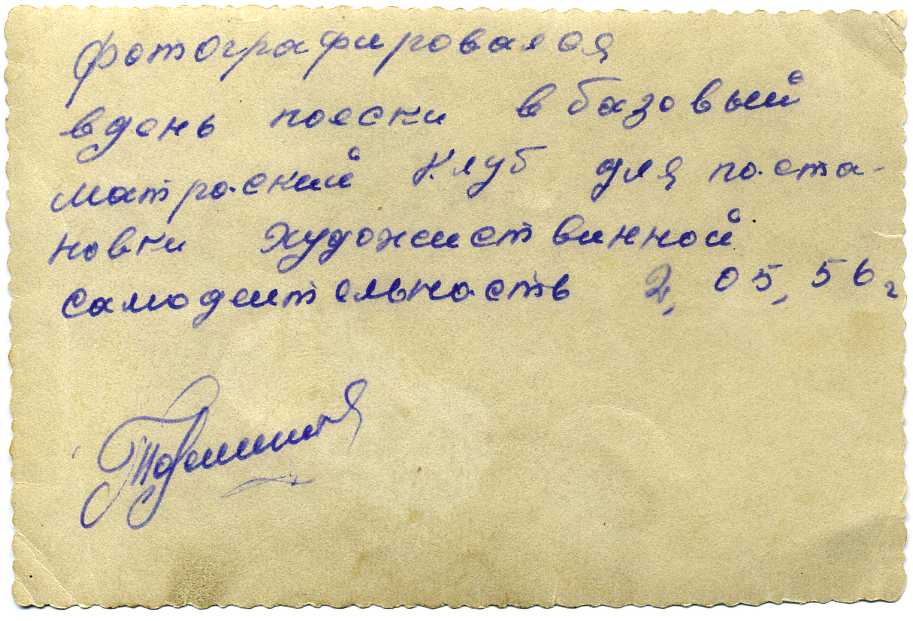 фотографировался
вдень поески в базовый
матроский клуб для поста-
новки художиствинной
самодеительность 2, 05, 56 г